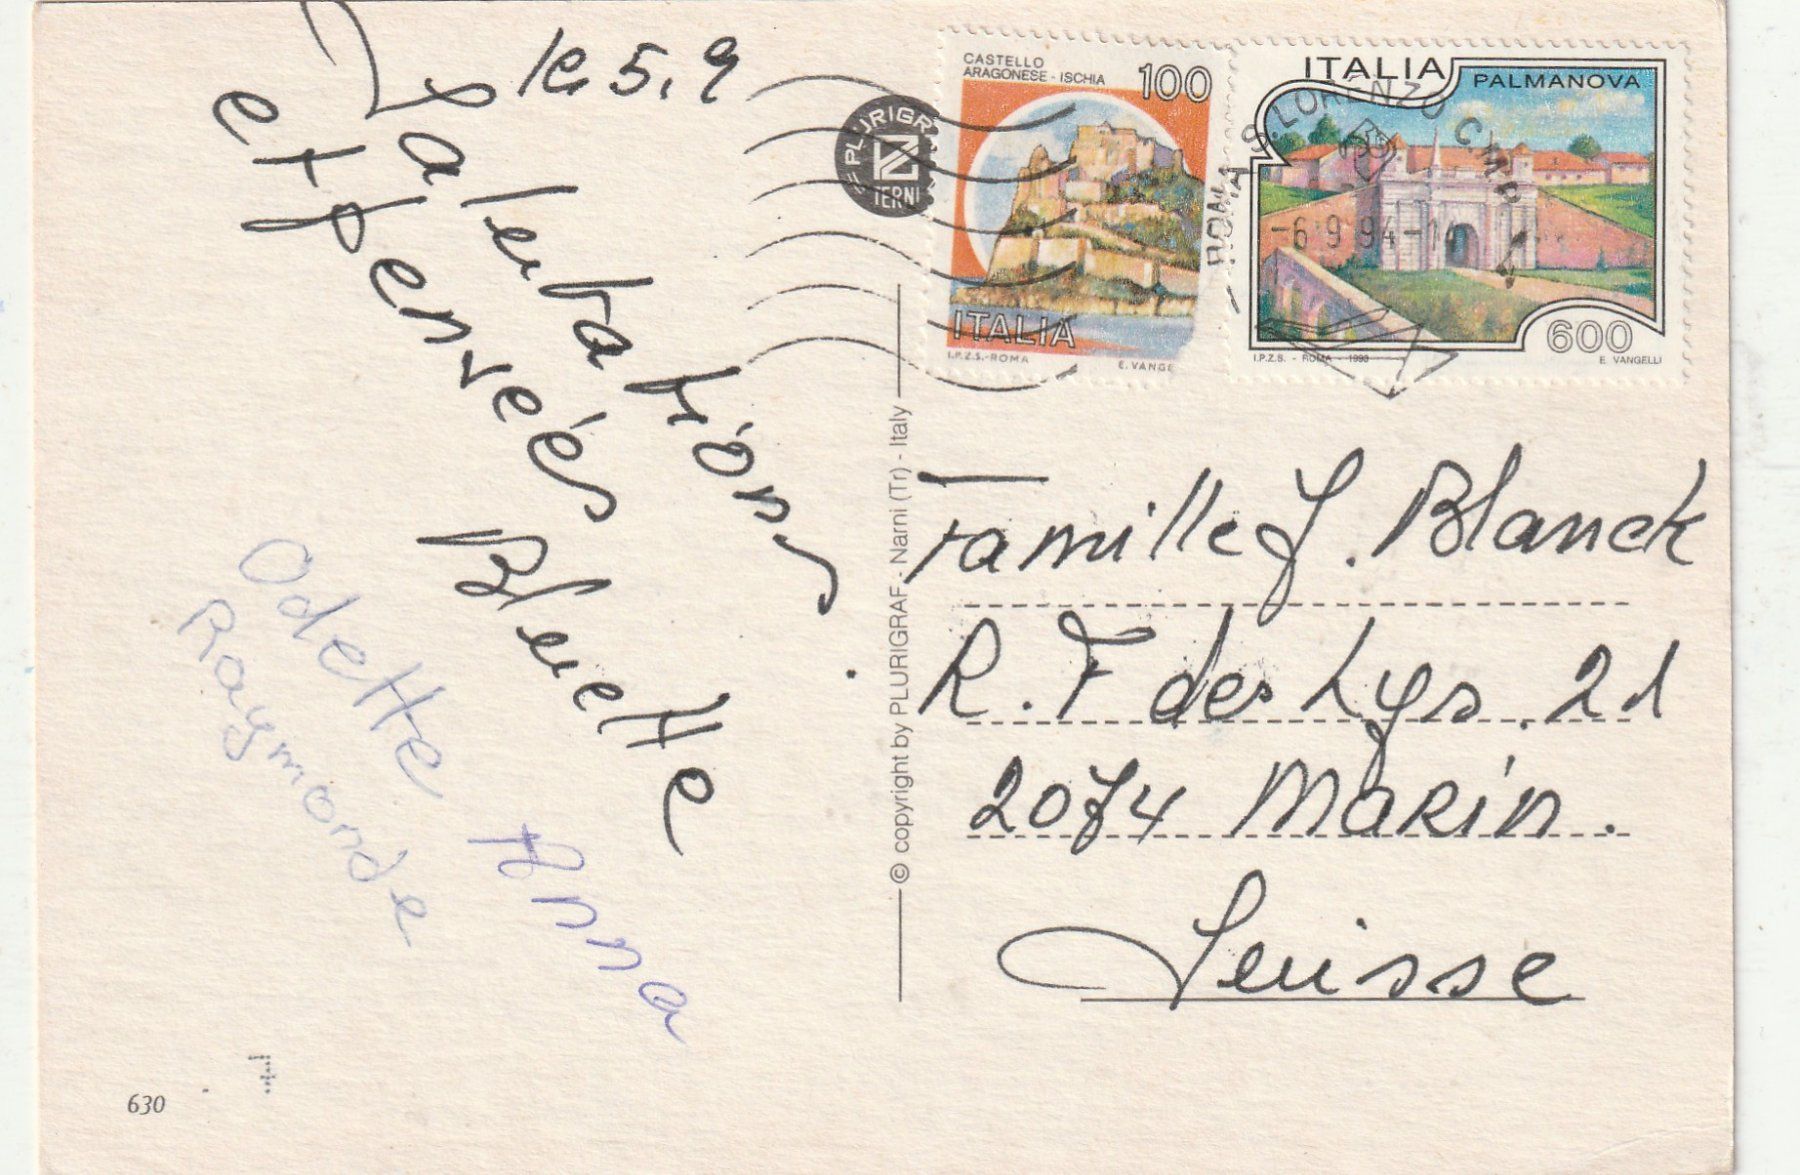 le 5.9
Salutations
et pensées
Bluette
Odette Anna
Raymonde
630
PLURIGRAF
TERNI
© copyright by PLURIGRAF - Narni (Tr) - Italy
CASTELLO
ARAGONESE - ISCHIA
100
ITALIA
I.P.Z.S. - ROMA
E. VANGE
ITALIA
PALMANOVA
600
I.P.Z.S. - ROMA - 1993
E. VANGELLI
ROMA S.LORENZO C.M.P.
-6 9 94-14
Famille J. Blanck
R. F des Lys. 21
2074 Marin.
Suisse